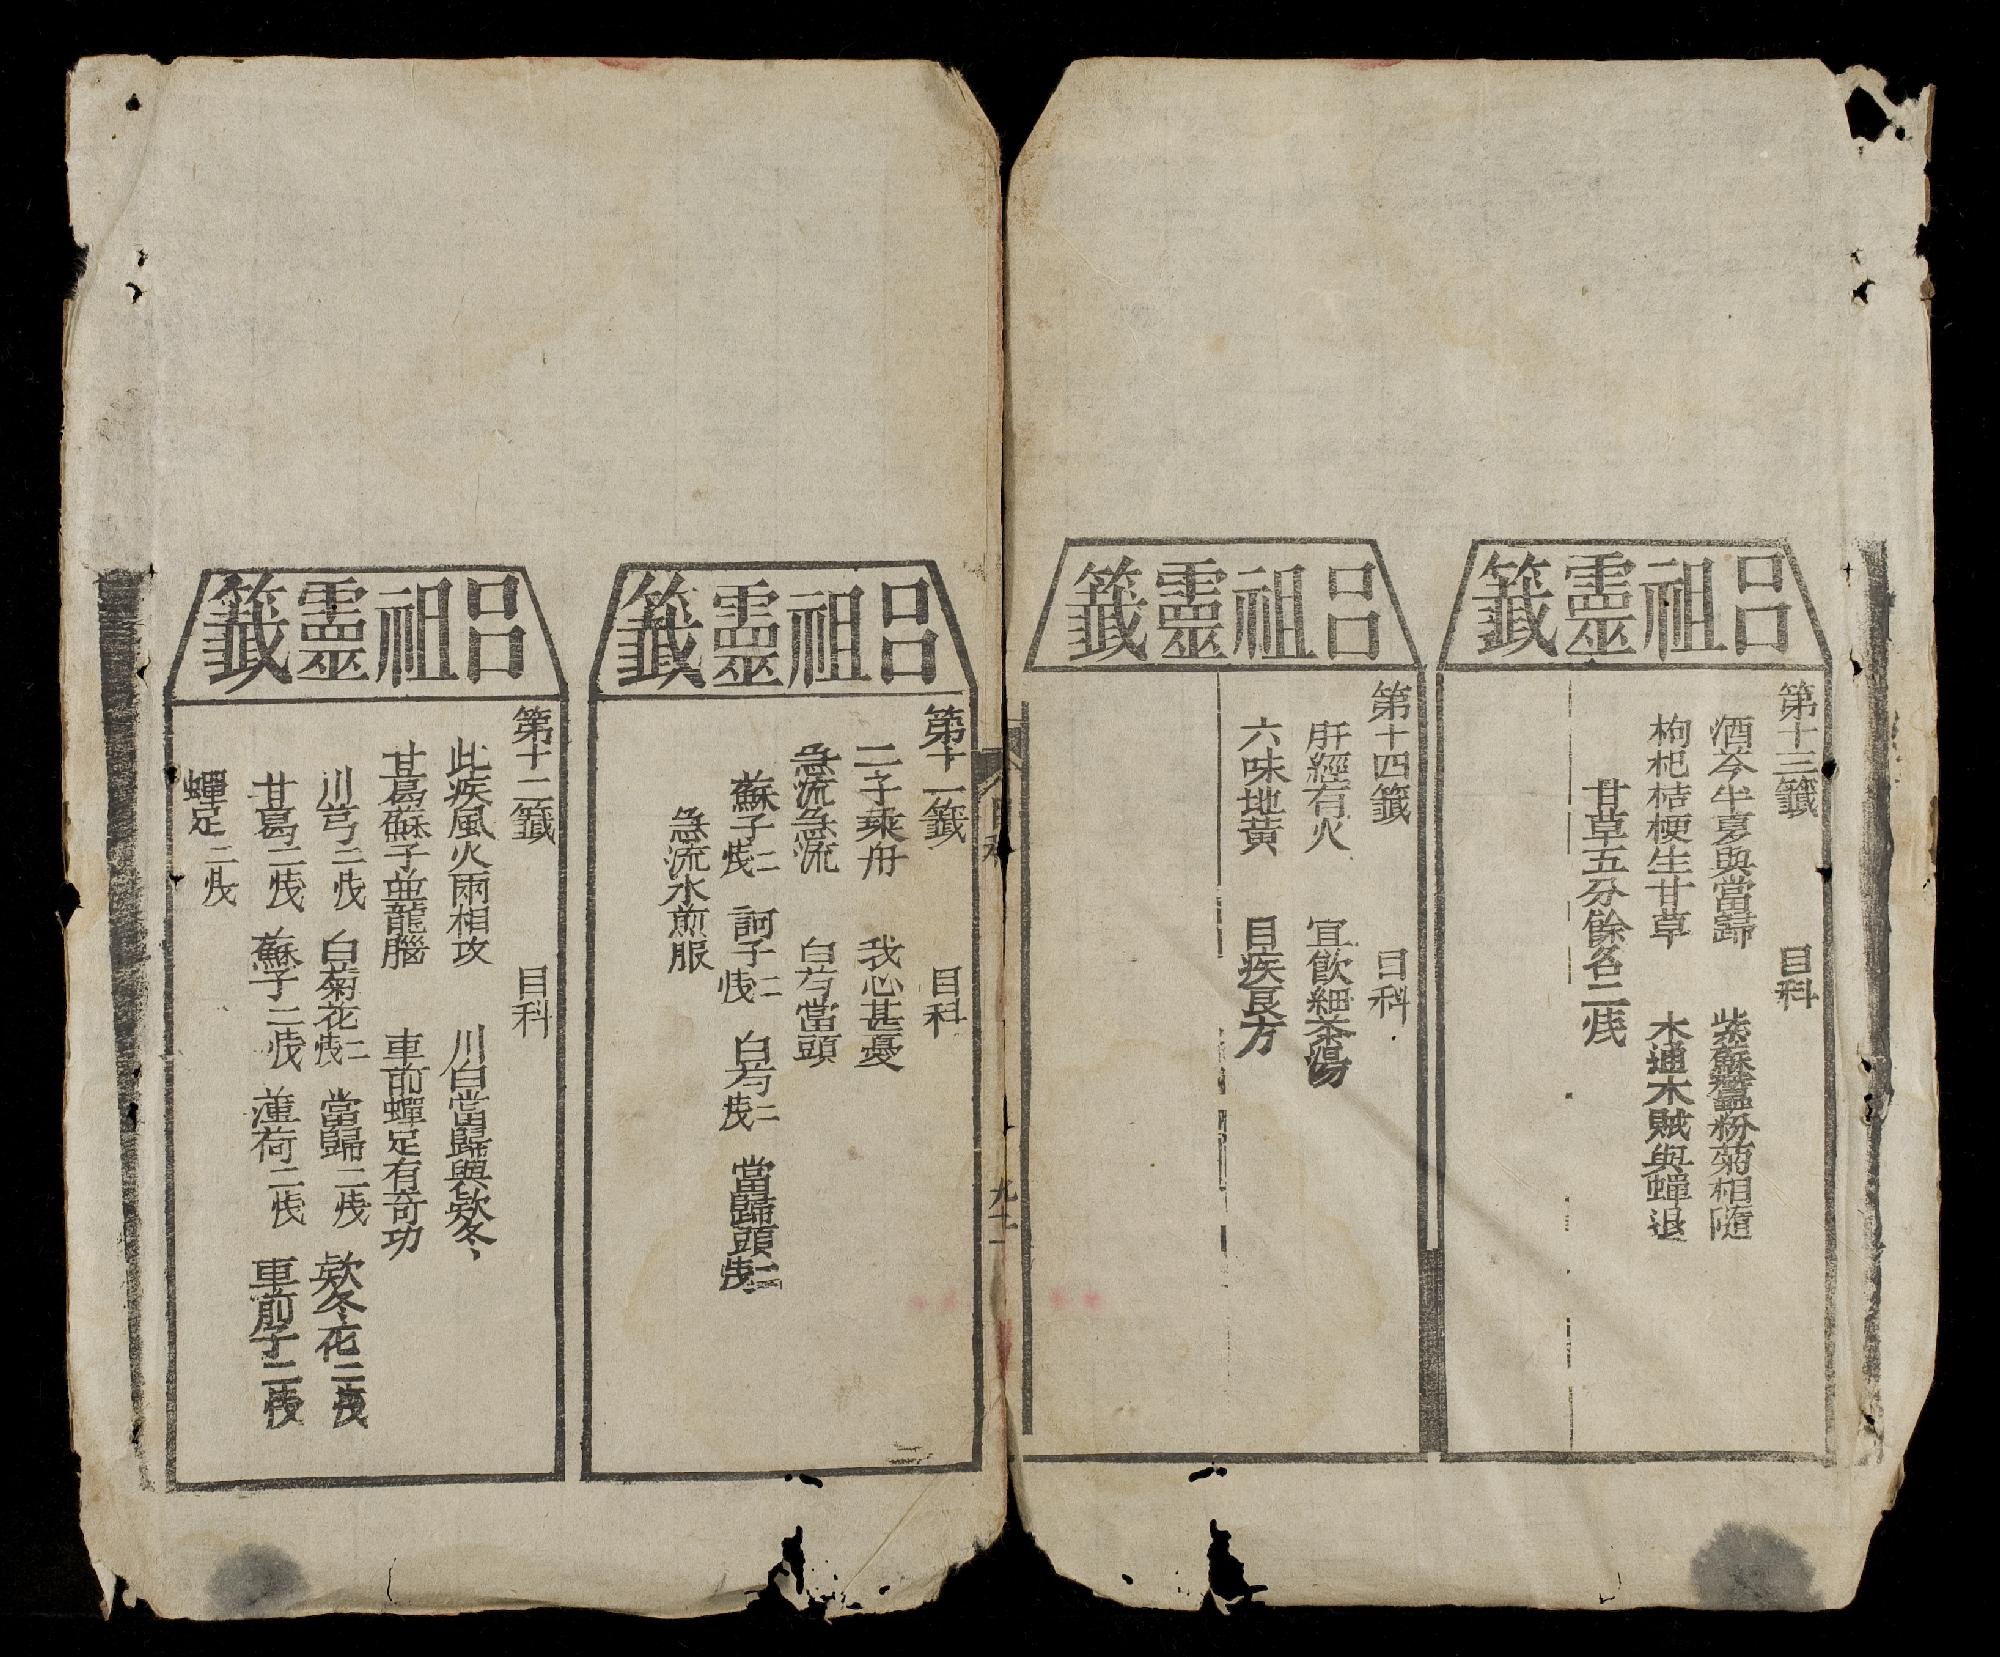 呂祖靈籤
第十三籤 目科
酒芩半夏與當歸 紫蘇蠶粉菊相隨
枸杞桔梗生甘草 木通木賊與蟬退
甘草五分餘各二戔
呂祖靈籤
第十四籤 目科
肝經有火 宜飲細茶湯
六味地黄 目疾良方
九二
呂祖靈籤
第十一籤 目科
二子乘舟 我心甚憂
急流急流 白芍當頭
蘇子二戔 訶子二戔 白芍二戔 當歸頭二戔
急流水煎服
二
呂祖靈籤
第十二籤 目科
此疾風火兩相攻 川白當歸與欵冬
甘葛蘇子並龍腦 車前蟬足有奇功
川芎二戔 白菊花二戔 當歸二戔 欵冬花二戔
甘葛二戔 蘇子二戔 薄荷二戔 車前子二戔
蟬足二戔